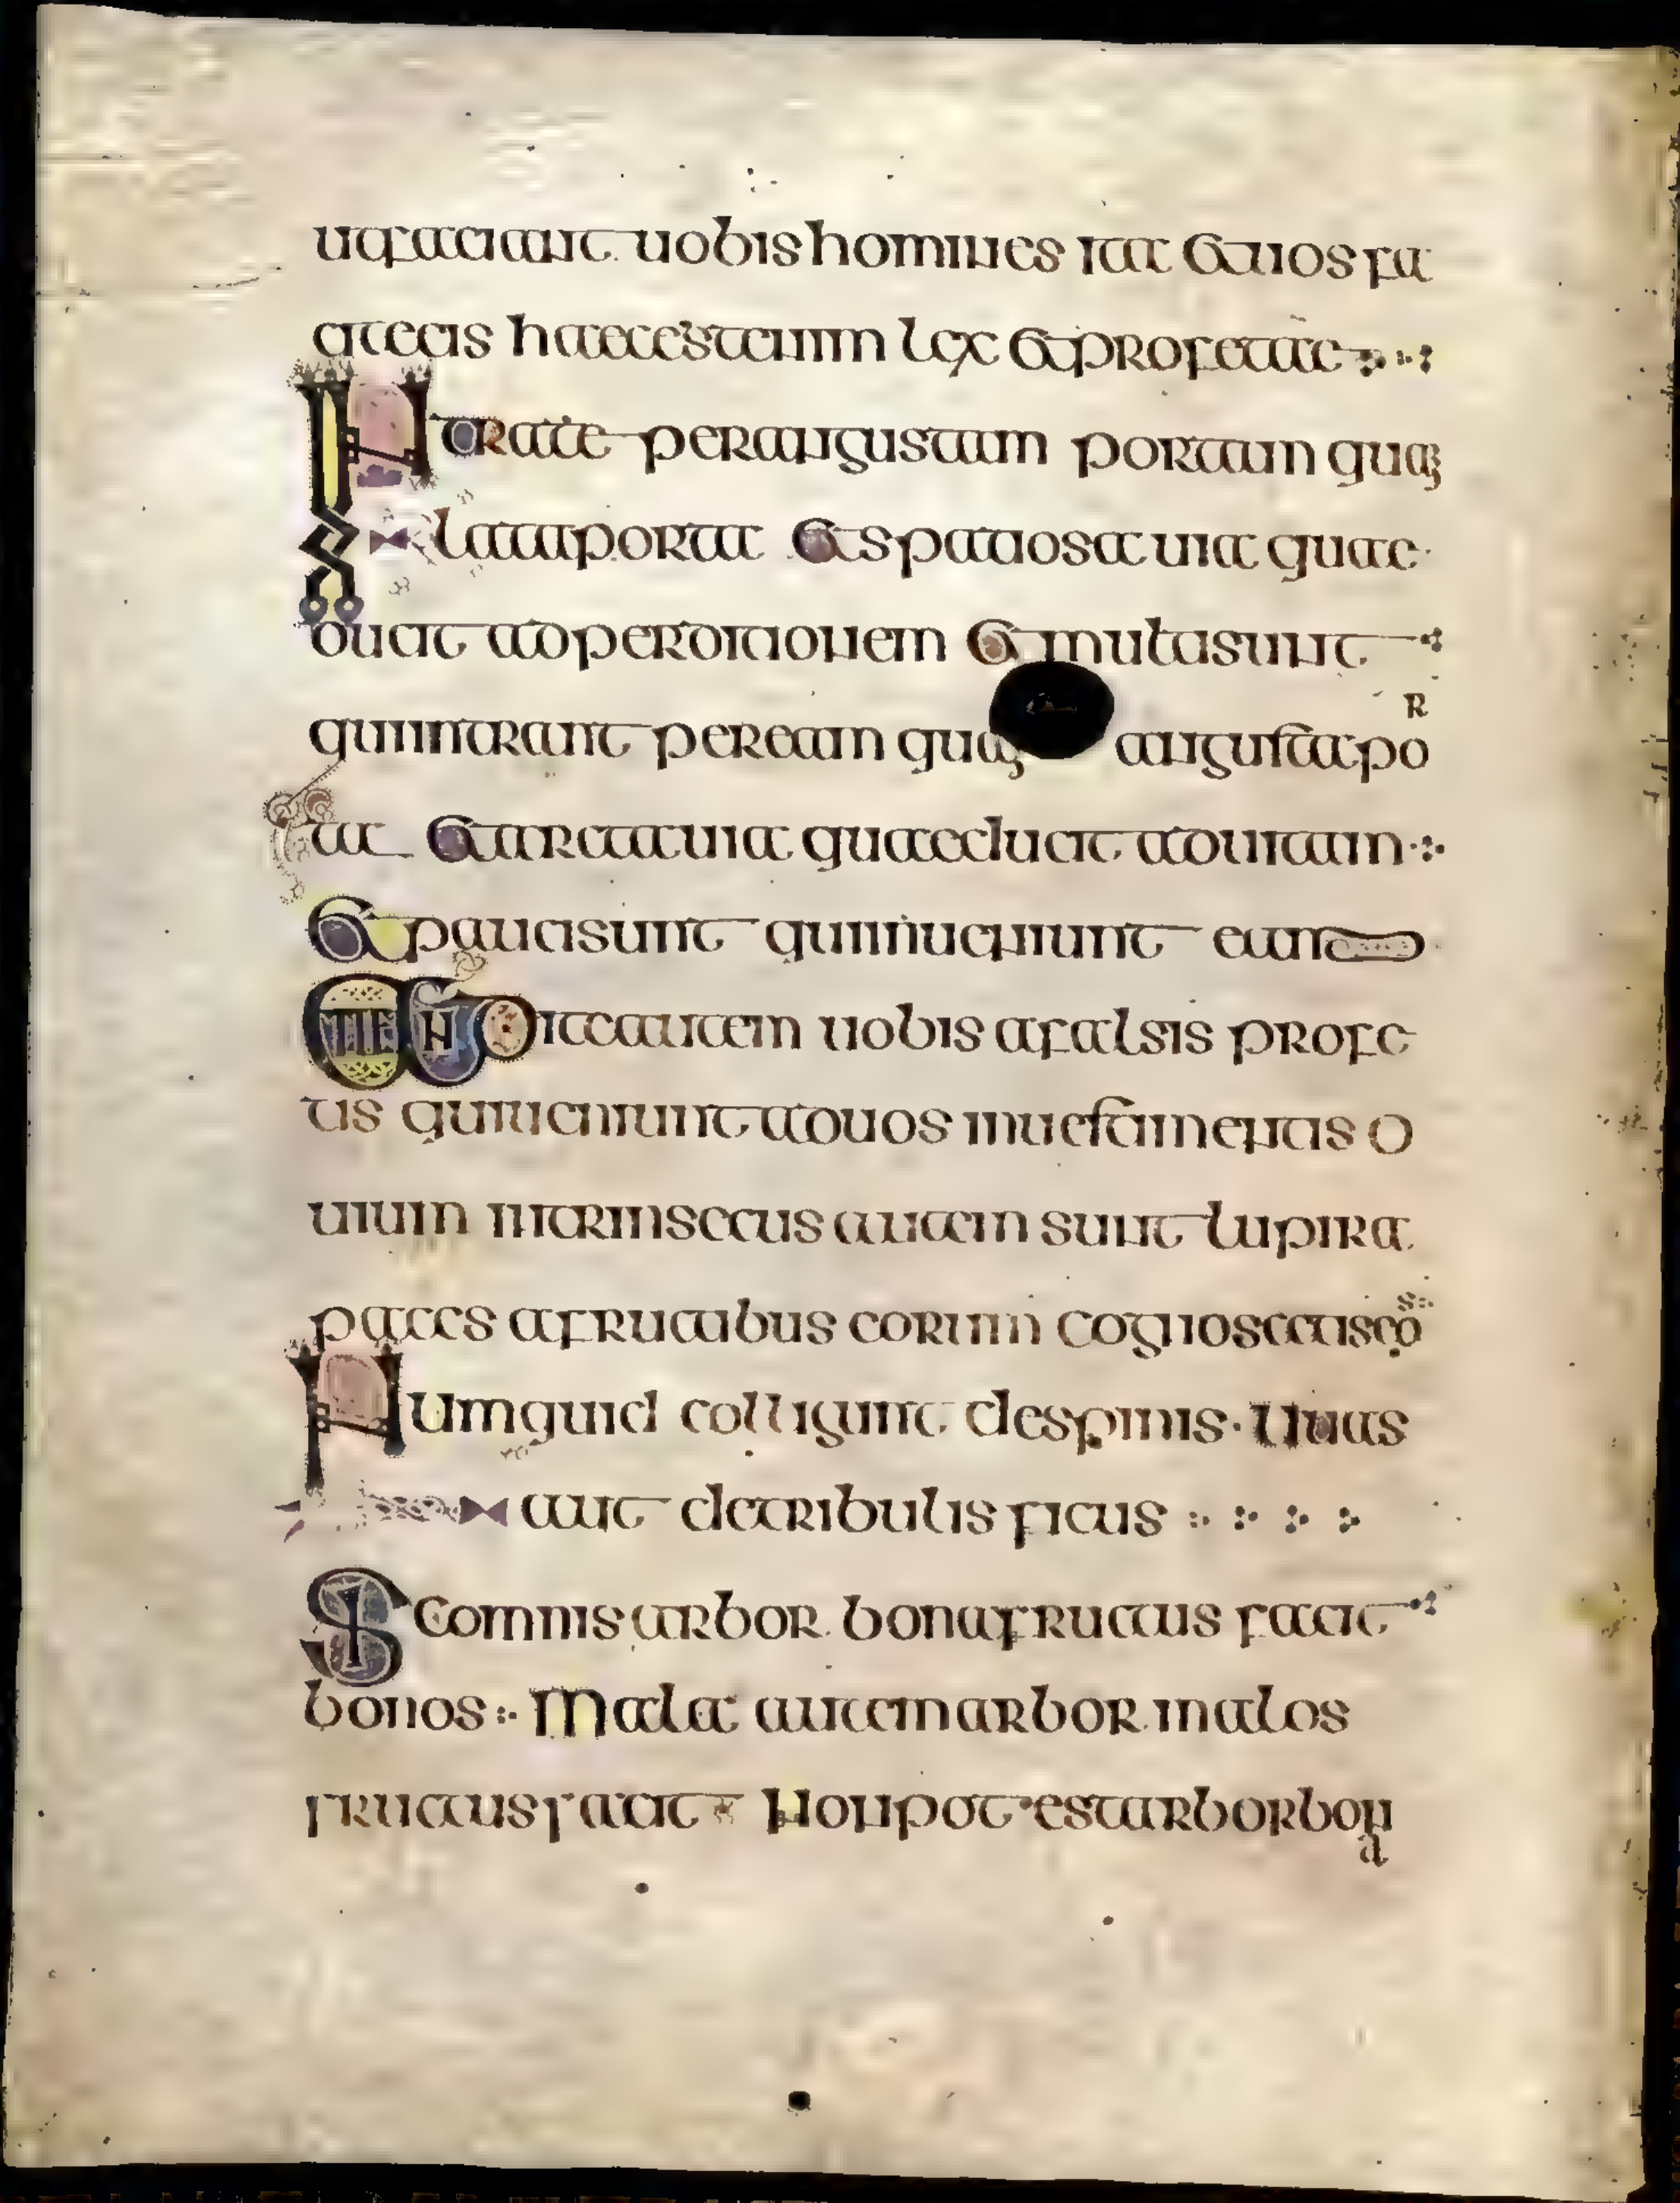 utfaciant uobis homines ita et uos fa
citecis haec est enim lex et profetae
Intrate per angustam portam quia
lata porta et spatiosa uia quae
ducit ad perditionem et multi sunt
qui intrant per eam quia angusta po r
ta et arta uia quae ducit ad uitam
et pauci sunt qui inueniunt eam
Attendite autem uobis a falsis profe
tis qui ueniunt ad uos in uestimentis o
uium intrinsecus autem sunt lupi ra
paces a fructibus eorum cognoscetis eos
Numquid colligunt de spinis · Uuas
aut de tribulis ficus
Sic omnis arbor bona fructus facit
bonos Mala autem arbor malos
fructus facit Non potest arbor bon
a